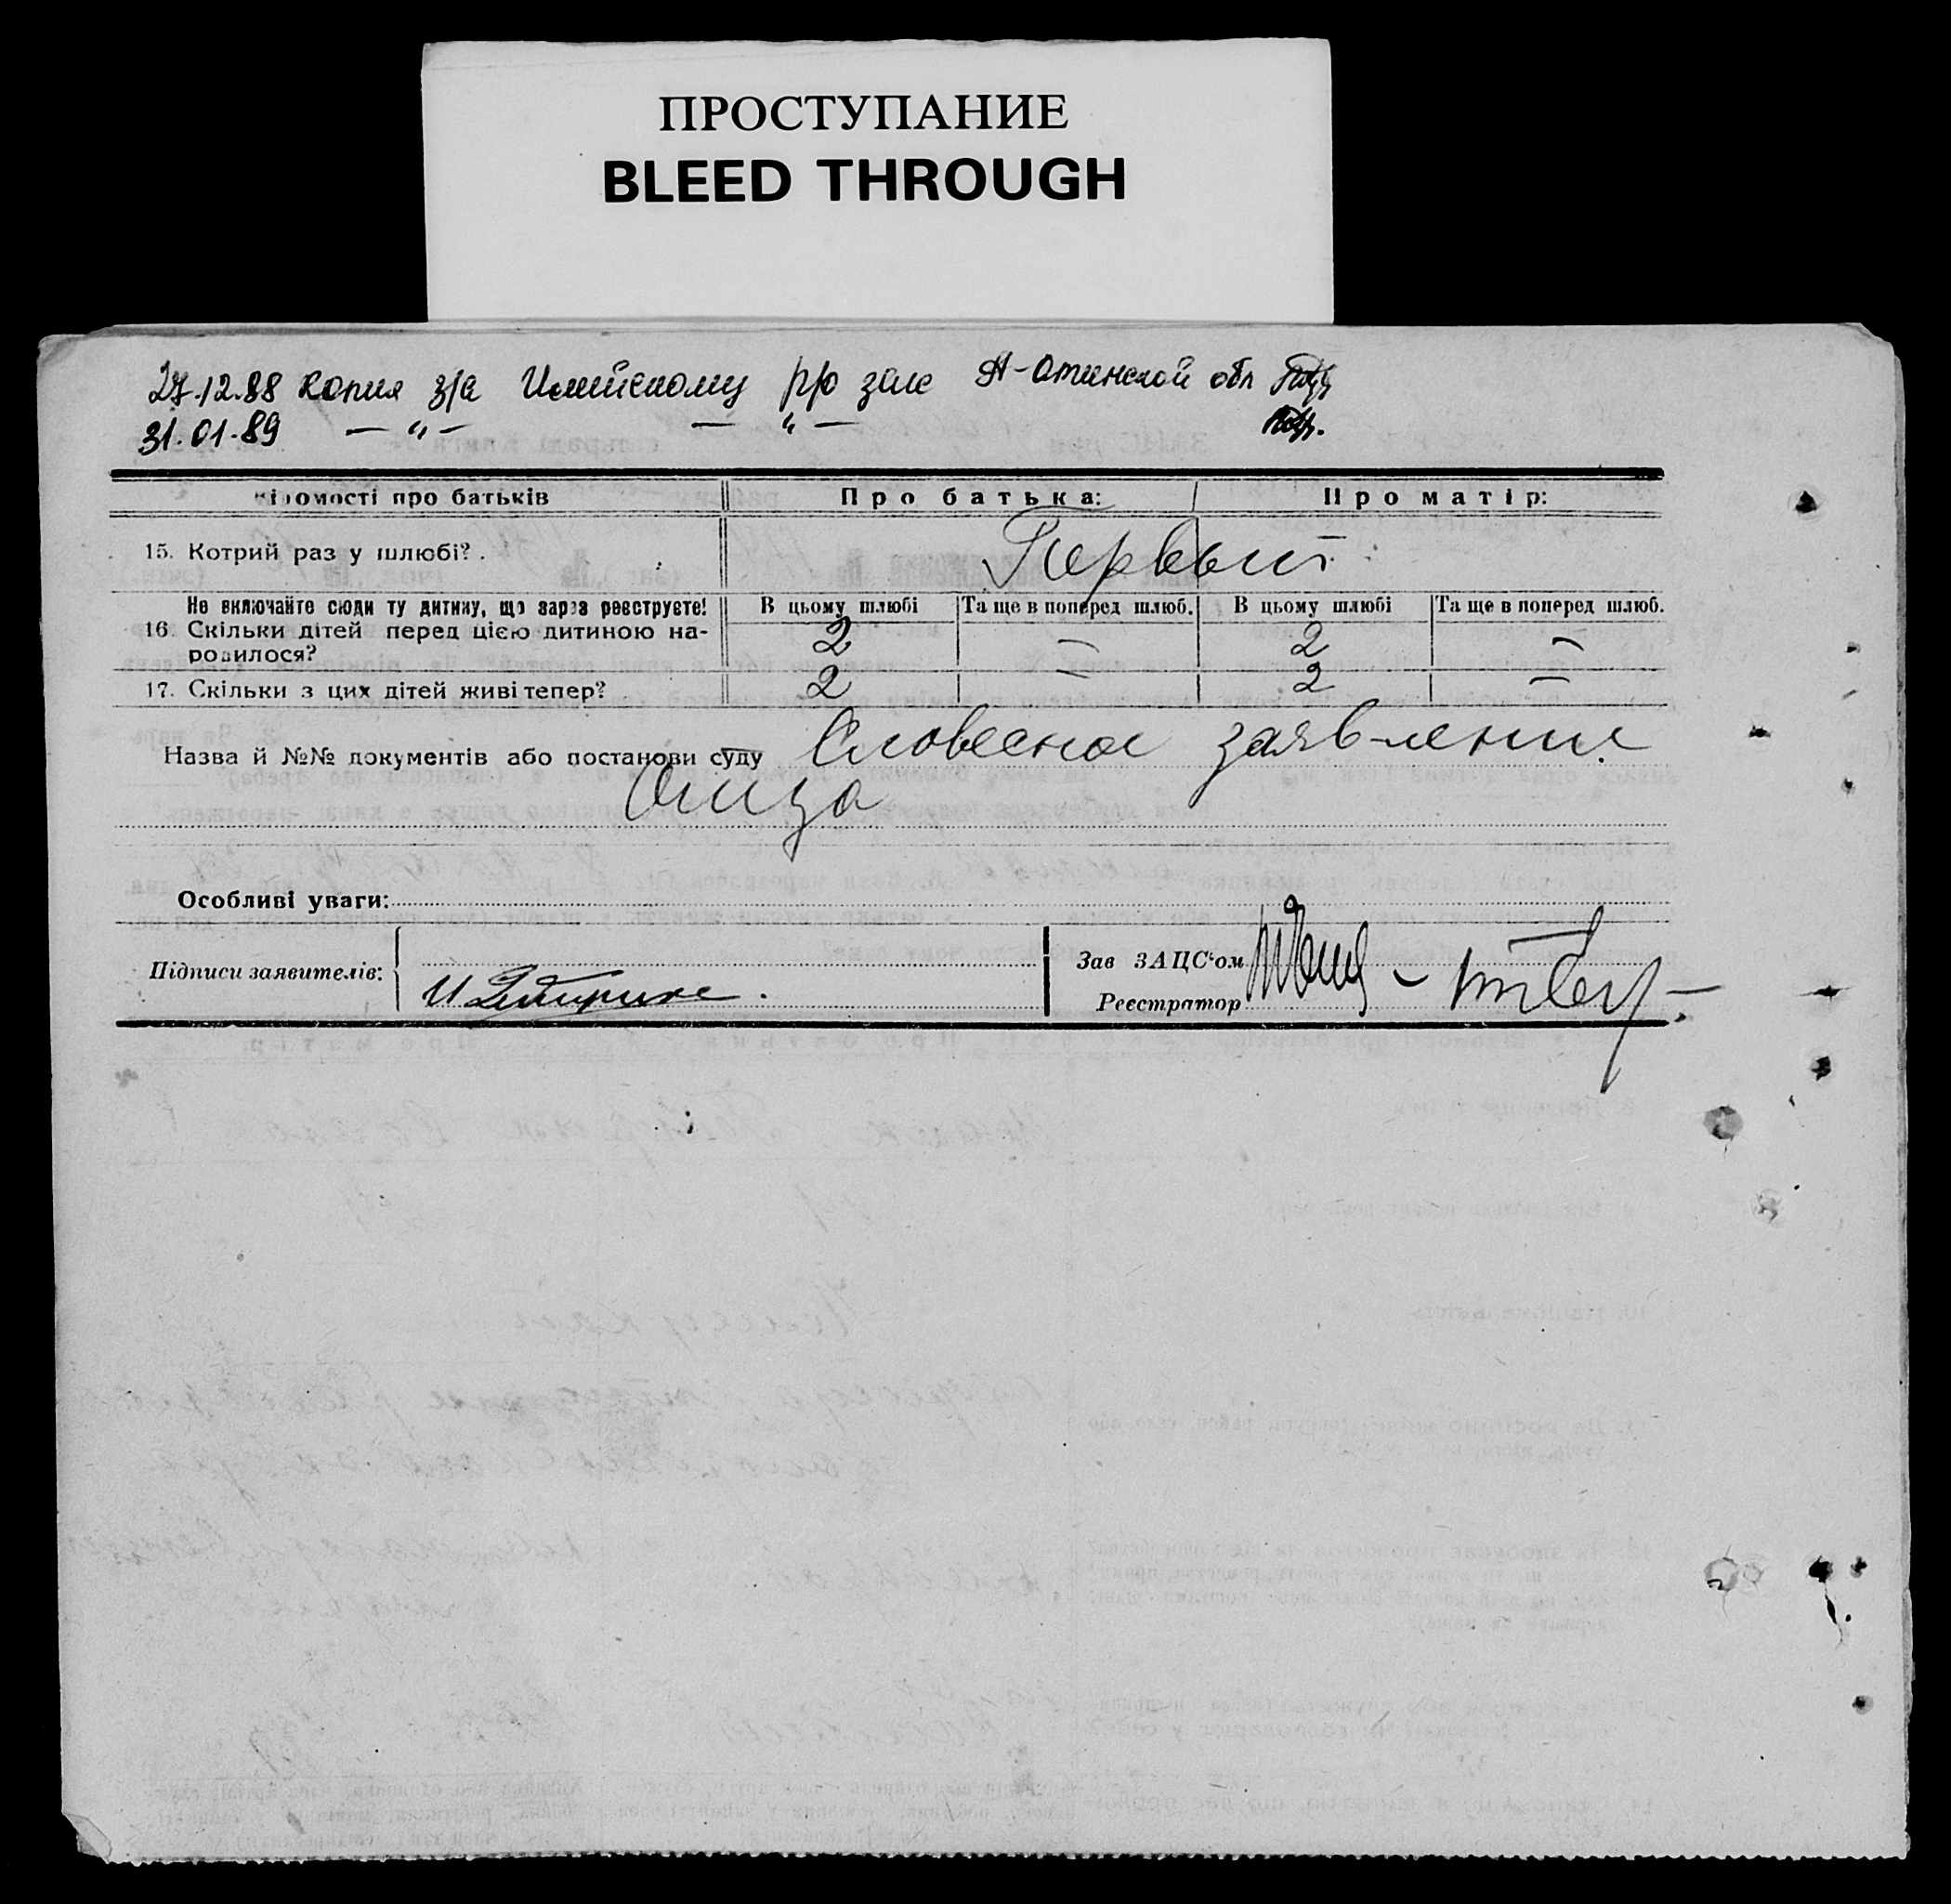 ПРОСТУПАНИЕ
BLEED THROUGH
27.12.88 копия з/а Илийскому р/о загс А-Атинской обл
31.01.89 — " — — " —
відомості про батьків Про батька: Про матір:
15. Котрий раз у шлюбі? Первый
Не включайте сюди ту дитину, що зараз реєструєте! В цьому шлюбі Та ще в поперед шлюб. В цьому шлюбі Та ще в поперед шлюб.
16. Скільки дітей перед цією дитиною на-
родилося? 2 — 2 —
17. Скільки з цих дітей живі тепер? 2 — 2 —
Назва й №№ документів або постанови суду Словесное заявление
Отца
Особливі уваги:
Підписи заявителів:
Зав ЗАЦС'ом
Реєстратор